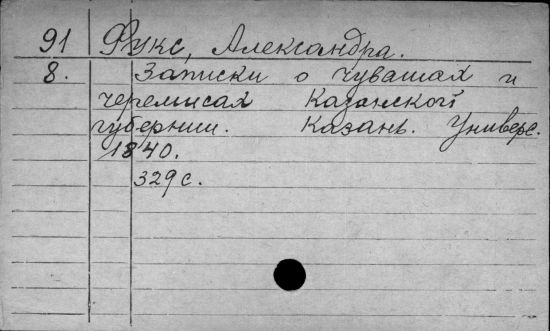 91 Фукс, Александра.
8. Записки о чувашах и
черемисах Казанской
губернии. Казань. Универс.
1840.
329 с.